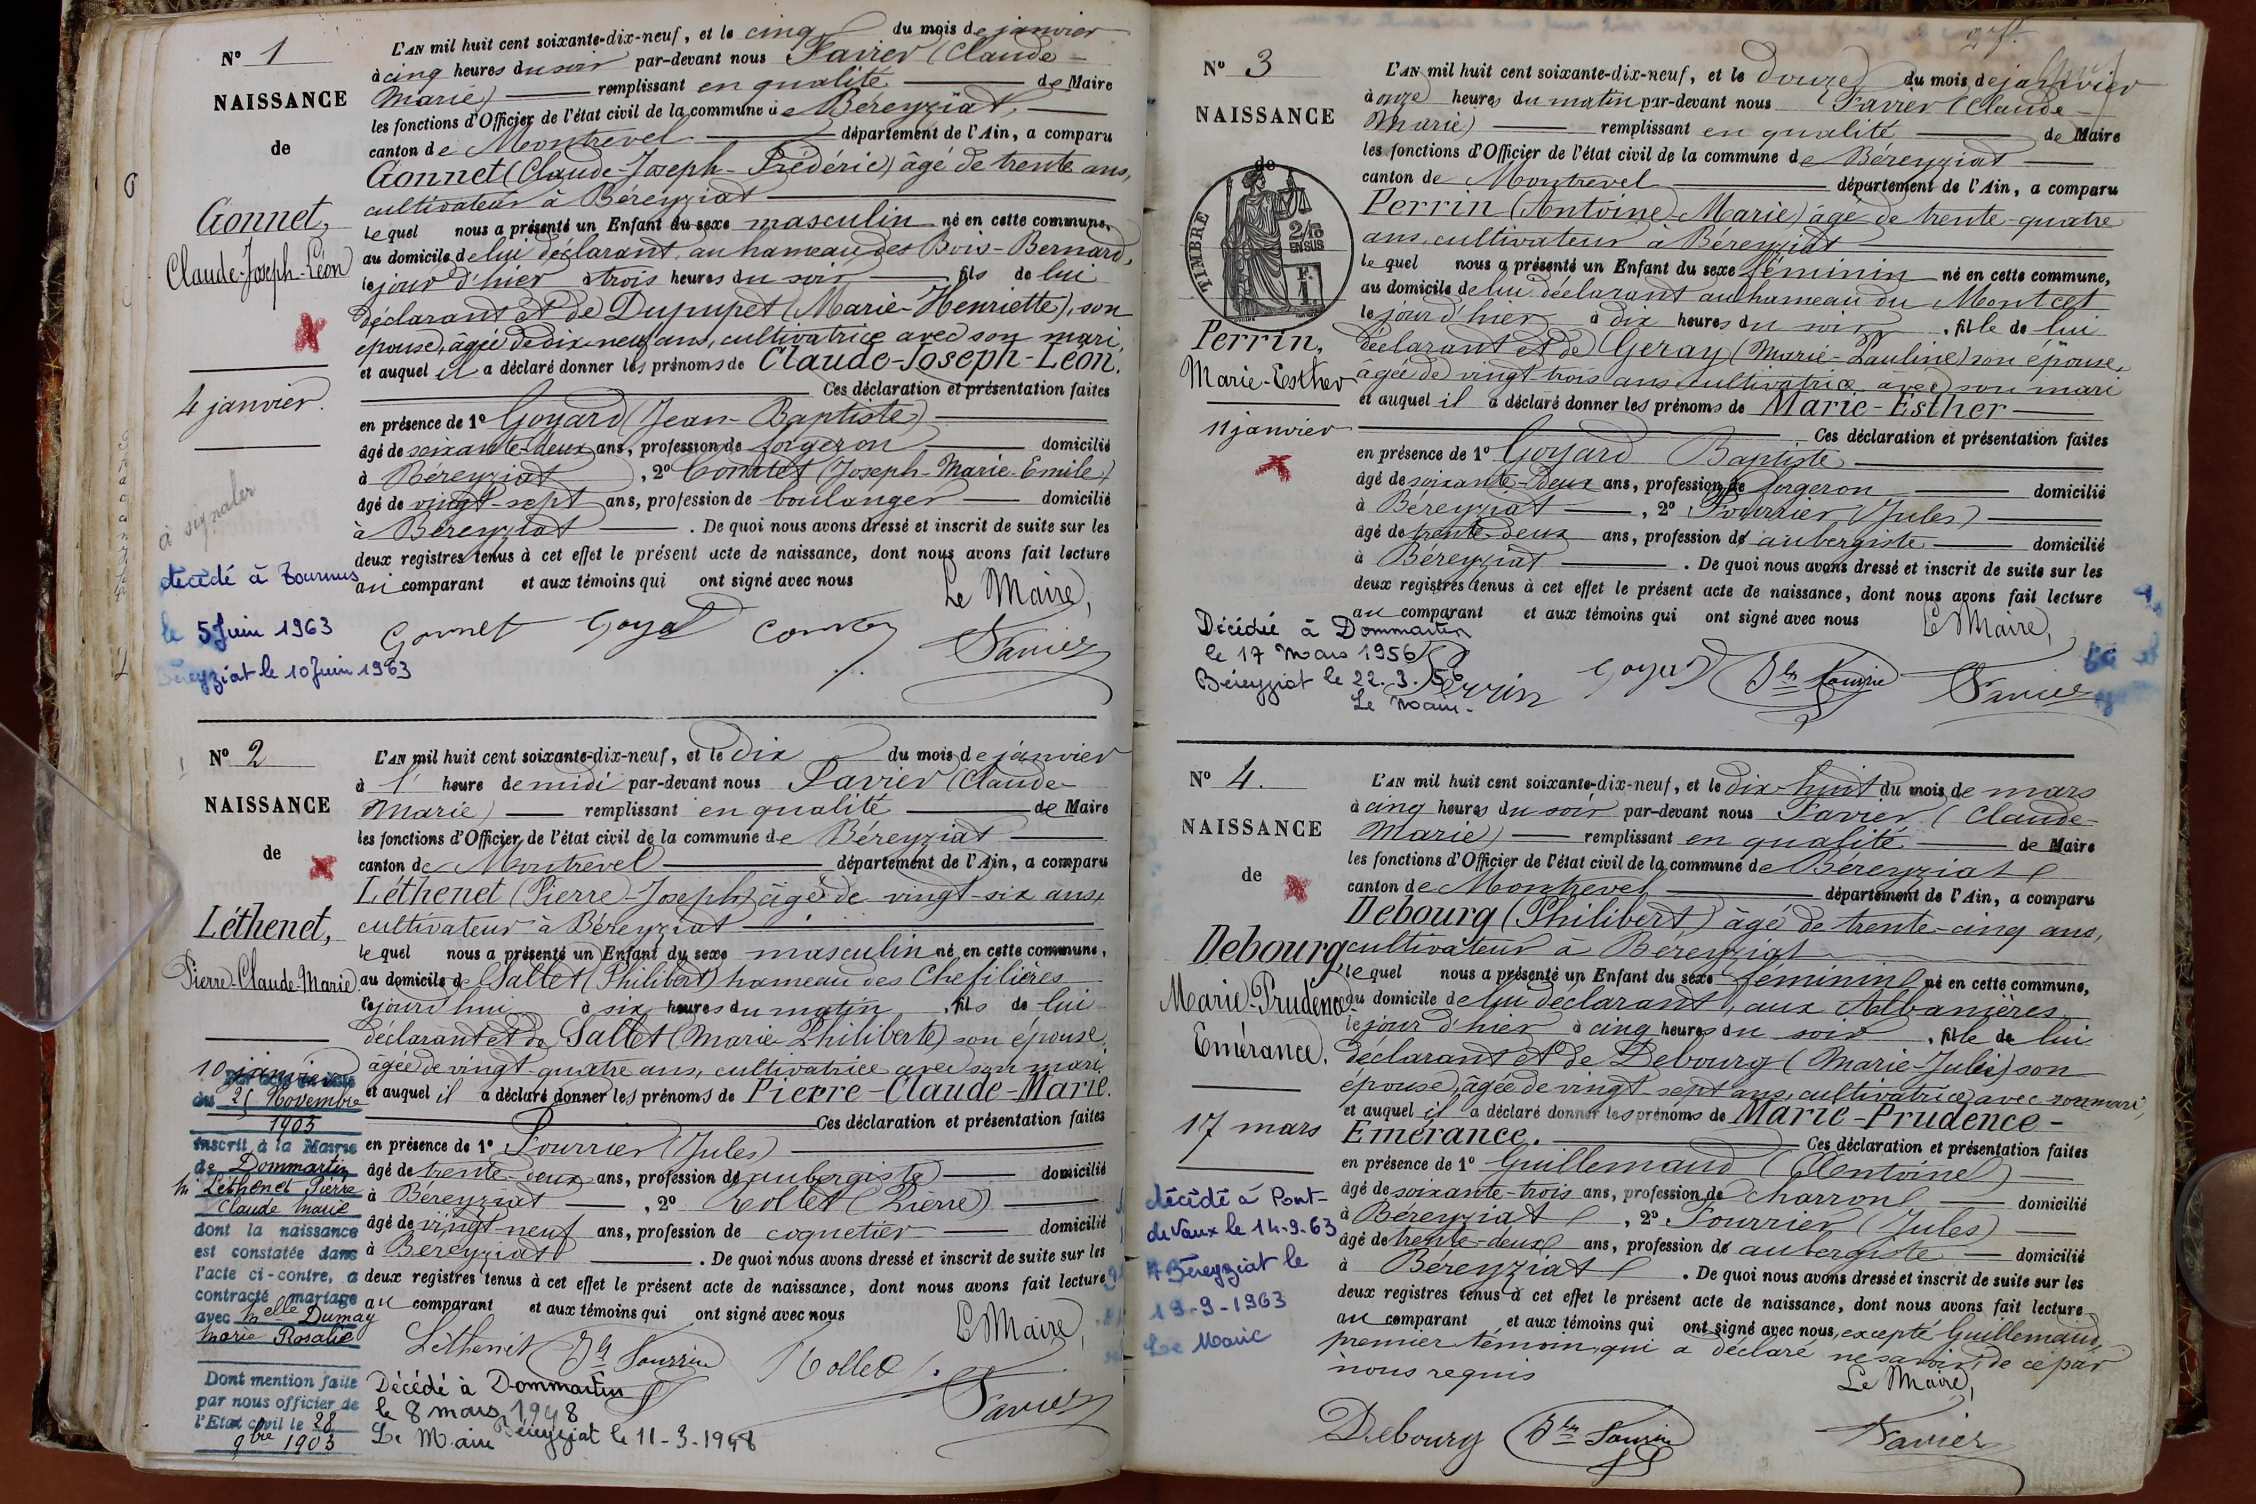 N° 1
NAISSANCE
de
Gonnet,
Claude-Joseph-Léon
4 janvier.
à signaler
décédé à Tournus
le 5 Juin 1963
Béreyziat le 10 Juin 1963
L'AN mil huit cent soixante-dix-neuf, et le cinq du mois de janvier
à cinq heures du soir par-devant nous Favier (Claude-
Marie) remplissant en qualité de Maire
les fonctions d'Officier de l'état civil de la commune de Béreyziat,
canton de Montrevel département de l'Ain, a comparu
Gonnet (Claude-Joseph-Frédéric) âgé de trente ans,
cultivateur à Béreyziat
lequel nous a présenté un Enfant du sexe masculin né en cette commune,
au domicile de lui déclarant au hameau des Bois-Bernard,
le jour d'hier à trois heures du soir fils de lui
déclarant et de Dupupet (Marie-Henriette), son
épouse, âgée de dix-neuf ans, cultivatrice avec son mari,
et auquel il a déclaré donner les prénoms de Claude-Joseph-Léon.
Ces déclaration et présentation faites
en présence de 1° Goyard (Jean-Baptiste)
âgé de soixante-deux ans, profession de forgeron domicilié
à Béreyziat, 2° (Joseph-Marie-Emile)
âgé de vingt-sept ans, profession de boulanger domicilié
à Béreyziat. De quoi nous avons dressé et inscrit de suite sur les
deux registres tenus à cet effet le présent acte de naissance, dont nous avons fait lecture
au comparant et aux témoins qui ont signé avec nous
Le Maire,
Gonnet Goyard Favier
N° 2
NAISSANCE
de
Léthenet,
Pierre-Claude-Marie
10 janvier
Par acte en date
du 25 Novembre
1903
inscrit à la Mairie
de Dommartin
M Léthenet Pierre
Claude Marie
dont la naissance
est constatée dans
l'acte ci-contre, a
contracté mariage
avec Melle Dumay
Marie Rosalie
Dont mention faite
par nous officier de
l'Etat civil le 28
9bre 1903
L'AN mil huit cent soixante-dix-neuf, et le dix du mois de janvier
à 1 heure de midi par-devant nous Favier (Claude-
Marie) remplissant en qualité de Maire
les fonctions d'Officier de l'état civil de la commune de Béreyziat
canton de Montrevel département de l'Ain, a comparu
Léthenet (Pierre-Joseph) âgé de vingt-six ans,
cultivateur à Béreyziat
lequel nous a présenté un Enfant du sexe masculin né en cette commune,
au domicile de Sallet (Philibert) hameau des Chefilières
cejourd'hui à six heures du matin, fils de lui
déclarant et de Sallet (Marie-Philiberte) son épouse
âgée de vingt-quatre ans, cultivatrice avec son mari
et auquel il a déclaré donner les prénoms de Pierre-Claude-Marie.
Ces déclaration et présentation faites
en présence de 1° Fourrier (Jules)
âgé de trente-deux ans, profession de aubergiste domicilié
à Béreyziat, 2° Rollet (Pierre)
âgé de vingt-neuf ans, profession de coquetier domicilié
à Béreyziat. De quoi nous avons dressé et inscrit de suite sur les
deux registres tenus à cet effet le présent acte de naissance, dont nous avons fait lecture
au comparant et aux témoins qui ont signé avec nous
Le Maire,
Léthenet Jles Fourrier Rollet Favier
Décédé à Dommartin
le 8 mars 1948
Le Maire Béreyziat le 11-3-1948
N° 3
NAISSANCE
de
TIMBRE
2/10
EN SUS
F.
1
Perrin,
Marie-Esther
11 janvier
Décédée à Dommartin
le 17 Mars 1956
Béreyziat le 22.3.56
Le Maire
L'AN mil huit cent soixante-dix-neuf, et le douze du mois de janvier
à onze heures du matin par-devant nous Favier (Claude-
Marie) remplissant en qualité de Maire
les fonctions d'Officier de l'état civil de la commune de Béreyziat
canton de Montrevel département de l'Ain, a comparu
Perrin (Antoine-Marie) âgé de trente-quatre
ans, cultivateur à Béreyziat
lequel nous a présenté un Enfant du sexe féminin né en cette commune,
au domicile de lui déclarant au hameau du Montcet
le jour d'hier à dix heures du soir, fille de lui
déclarant et de Geray (Marie-Pauline) son épouse,
âgée de vingt-trois ans, cultivatrice avec son mari
et auquel il a déclaré donner les prénoms de Marie-Esther
Ces déclaration et présentation faites
en présence de 1° Goyard Baptiste
âgé de soixante-deux ans, profession de forgeron domicilié
à Béreyziat, 2° Fourrier (Jules)
âgé de trente-deux ans, profession de aubergiste domicilié
à Béreyziat. De quoi nous avons dressé et inscrit de suite sur les
deux registres tenus à cet effet le présent acte de naissance, dont nous avons fait lecture
au comparant et aux témoins qui ont signé avec nous
Le Maire,
Perrin Goyard Jles Fourrier Favier
N° 4.
NAISSANCE
de
Debourg
Marie-Prudence-
Emérance.
17 mars
décédé à Pont-
de Vaux le 14-9-63
A Béreyziat le
19-9-1963
Le Maire
L'AN mil huit cent soixante-dix-neuf, et le dix-huit du mois de mars
à cinq heures du soir par-devant nous Favier (Claude-
Marie) remplissant en qualité de Maire
les fonctions d'Officier de l'état civil de la commune de Béreyziat
canton de Montrevel département de l'Ain, a comparu
Debourg (Philibert) âgé de trente-cinq ans,
cultivateur à Béreyziat
lequel nous a présenté un Enfant du sexe féminin né en cette commune,
au domicile de lui déclarant, aux Albanières
le jour d'hier à cinq heures du soir, fille de lui
déclarant et de Debourg (Marie-Julie) son
épouse, âgée de vingt-sept ans, cultivatrice avec son mari,
et auquel il a déclaré donner les prénoms de Marie-Prudence-
Emérance. Ces déclaration et présentation faites
en présence de 1° Guillemaud (Antoine)
âgé de soixante-trois ans, profession de charron domicilié
à Béreyziat, 2° Fourrier (Jules)
âgé de trente-deux ans, profession de aubergiste domicilié
à Béreyziat. De quoi nous avons dressé et inscrit de suite sur les
deux registres tenus à cet effet le présent acte de naissance, dont nous avons fait lecture
au comparant et aux témoins qui ont signé avec nous, excepté Guillemaud,
premier témoin qui a déclaré ne savoir, de ce par
nous requis
Le Maire,
Debourg Jles Fourrier Favier